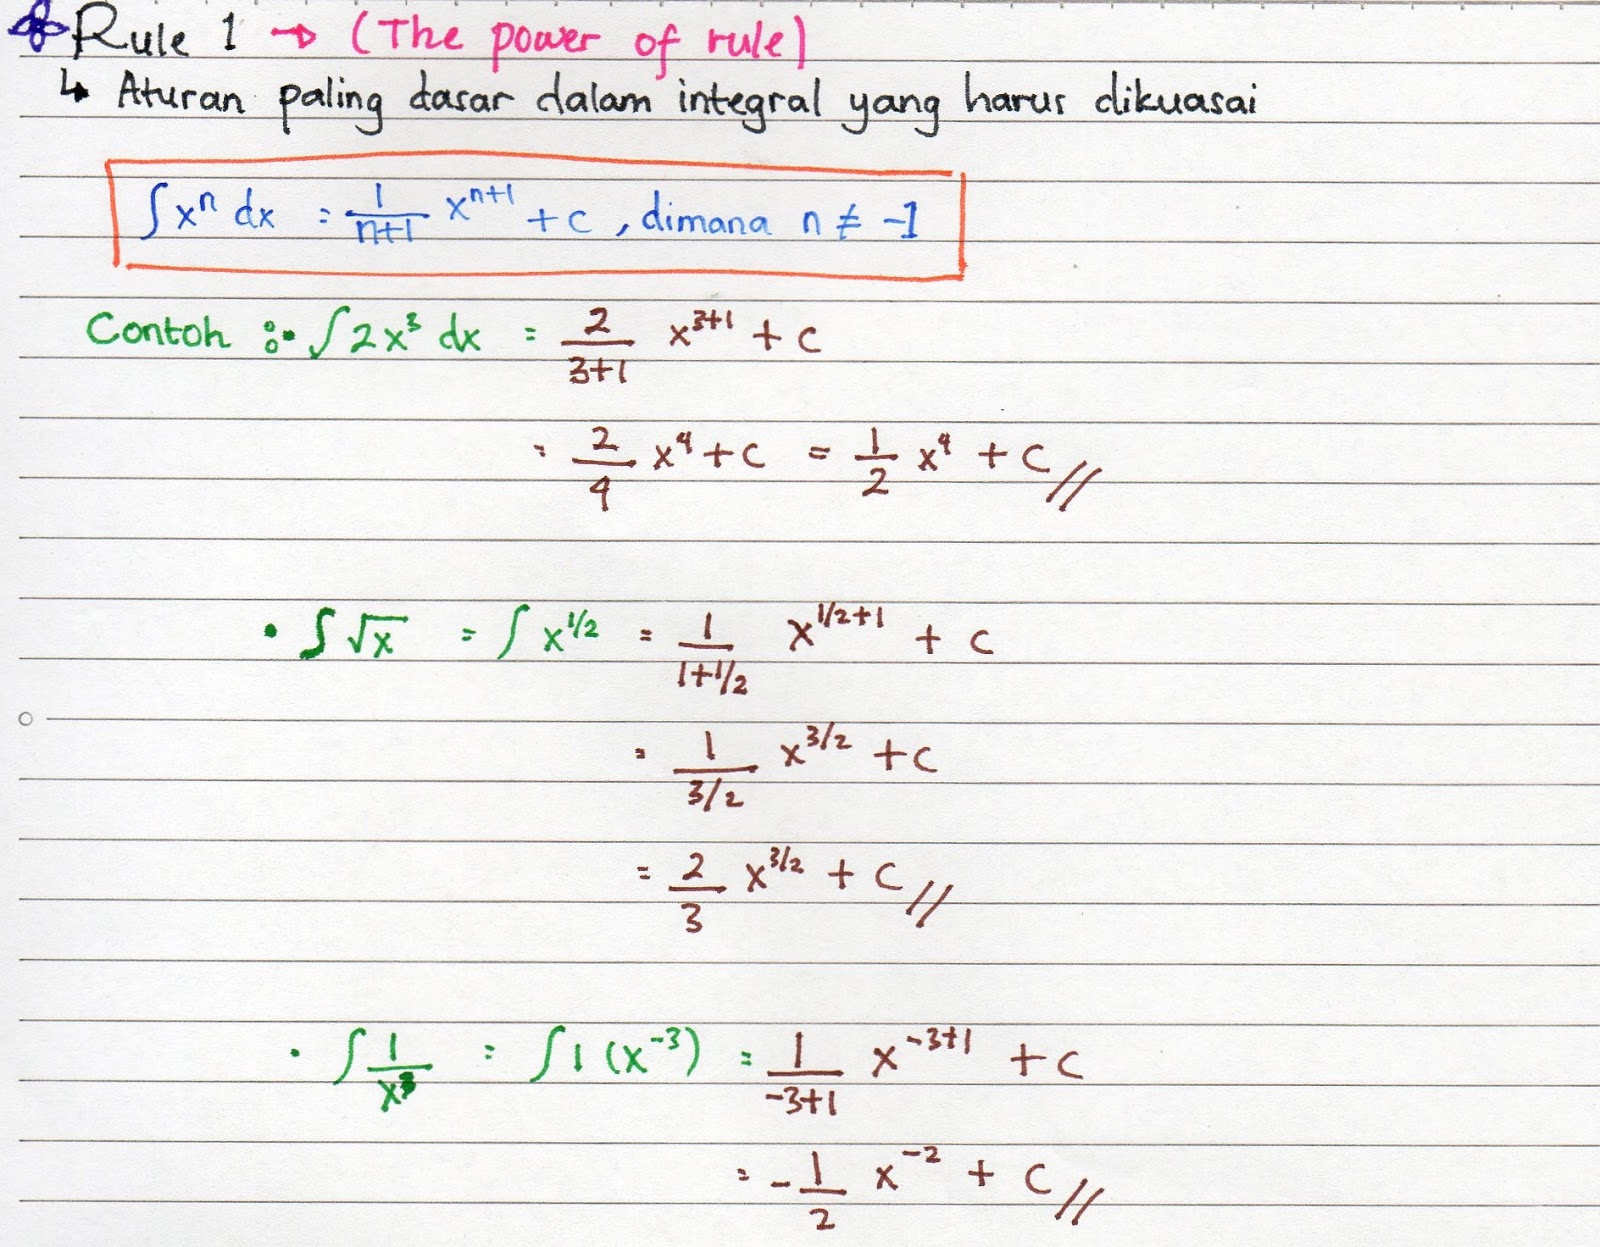 Rule 1 → (The power of rule)
↳ Aturan paling dasar dalam integral yang harus dikuasai
∫ xⁿ dx = 1/(n+1) xⁿ⁺¹ + c , dimana n ≠ -1
Contoh : • ∫ 2x³ dx = 2/(3+1) x³⁺¹ + c
= 2/4 x⁴ + c = 1/2 x⁴ + c //
• ∫ √x = ∫ x^(1/2) = 1/(1+1/2) x^(1/2+1) + c
= 1/(3/2) x^(3/2) + c
= 2/3 x^(3/2) + c //
• ∫ 1/x³ = ∫ 1 (x⁻³) = 1/(-3+1) x⁻³⁺¹ + c
= - 1/2 x⁻² + c //